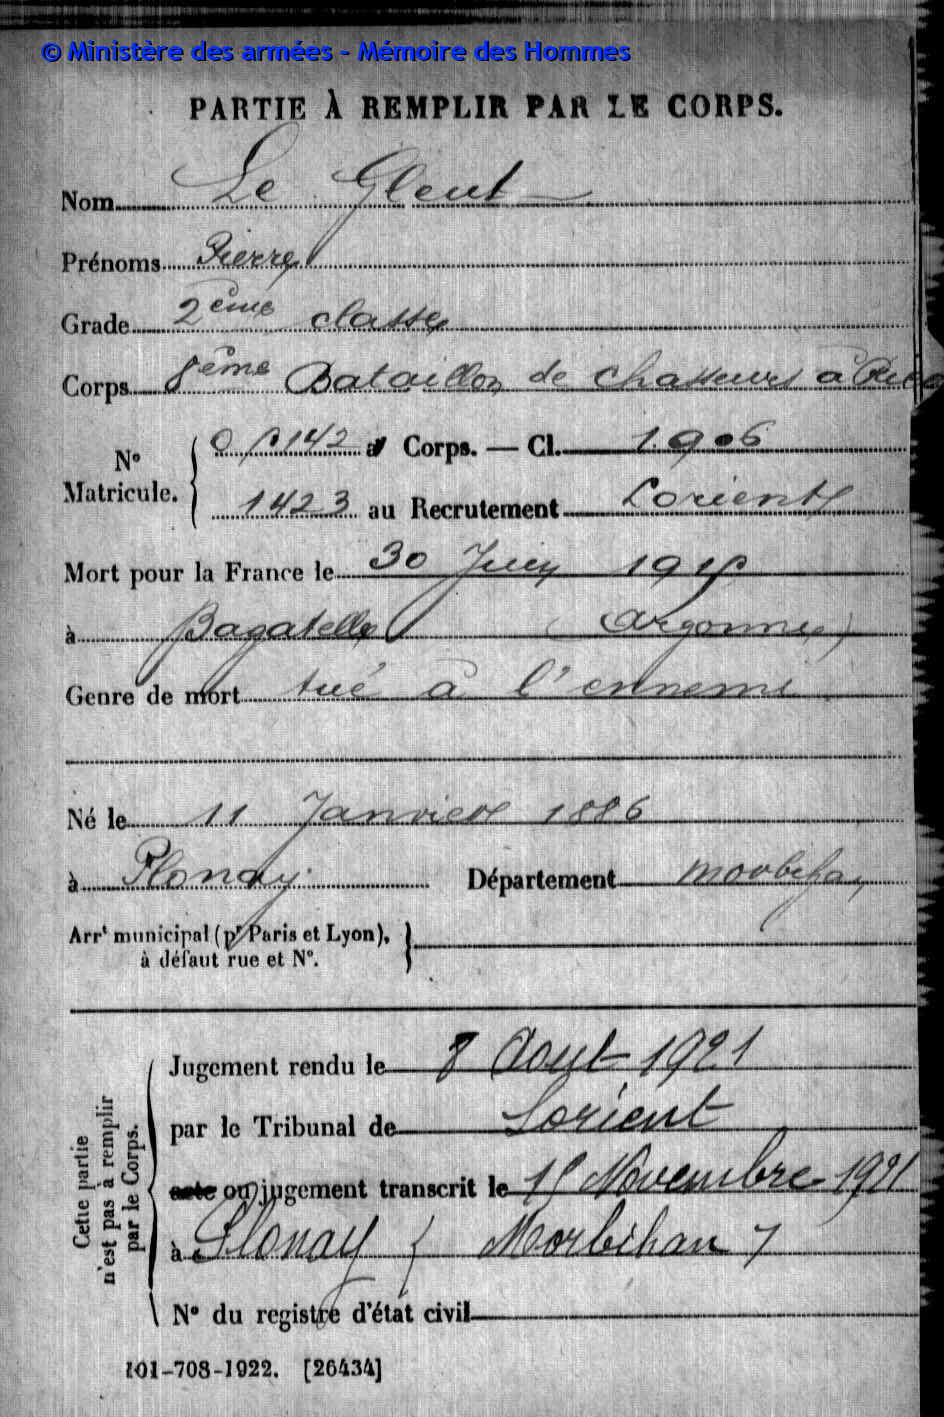 © Ministère des armées - Mémoire des Hommes
PARTIE À REMPLIR PAR LE CORPS.
Nom Le Gleut
Prénoms Pierre
Grade 2ème classe
Corps 8ème Bataillon de chasseurs à Pied
N° Matricule. 142 au Corps. — Cl. 1906
1423 au Recrutement Lorient
Mort pour la France le 30 Juin 1915
à Bagatelle (Argonne)
Genre de mort tué à l'ennemi
Né le 11 Janvier 1886
à Plonay Département Morbihan
Arrt municipal (pr Paris et Lyon), à défaut rue et N°.
Cette partie n'est pas à remplir par le Corps.
Jugement rendu le 8 Aout 1921
par le Tribunal de Lorient
acte ou jugement transcrit le 15 Novembre 1921
à Plonay (Morbihan)
N° du registre d'état civil
101-708-1922. [26434]